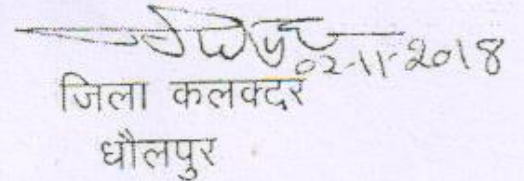 02-11-2018
जिला कलक्टर
धौलपुर